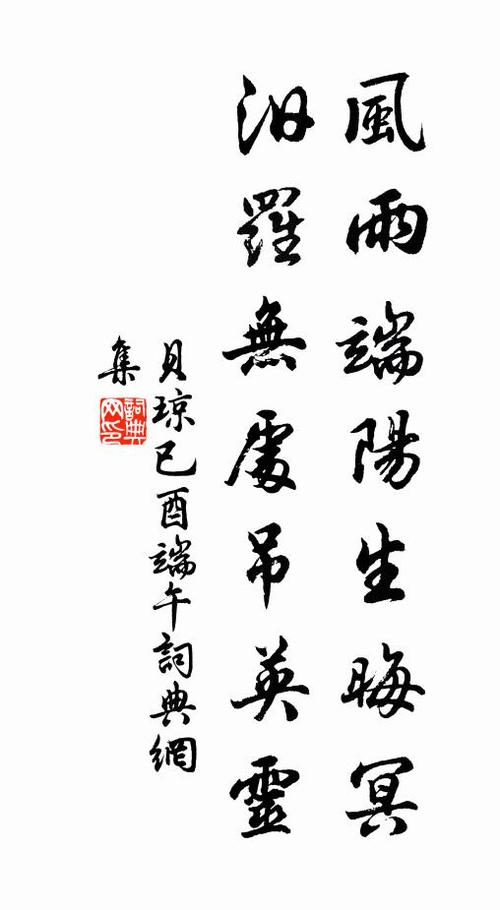 風雨端陽生晦冥
汨羅無處吊英靈
貝琼已酉端午詞典網
集
詞典
网印